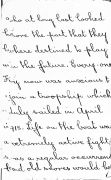 who at long last looked
know the part that they
were destined to play
in the future. Every one
They now was anxious to
join a troopship which
duly sailed in April
1915. Life on the boat was
extremely active fight
as a regular occurrence
and old scores would be